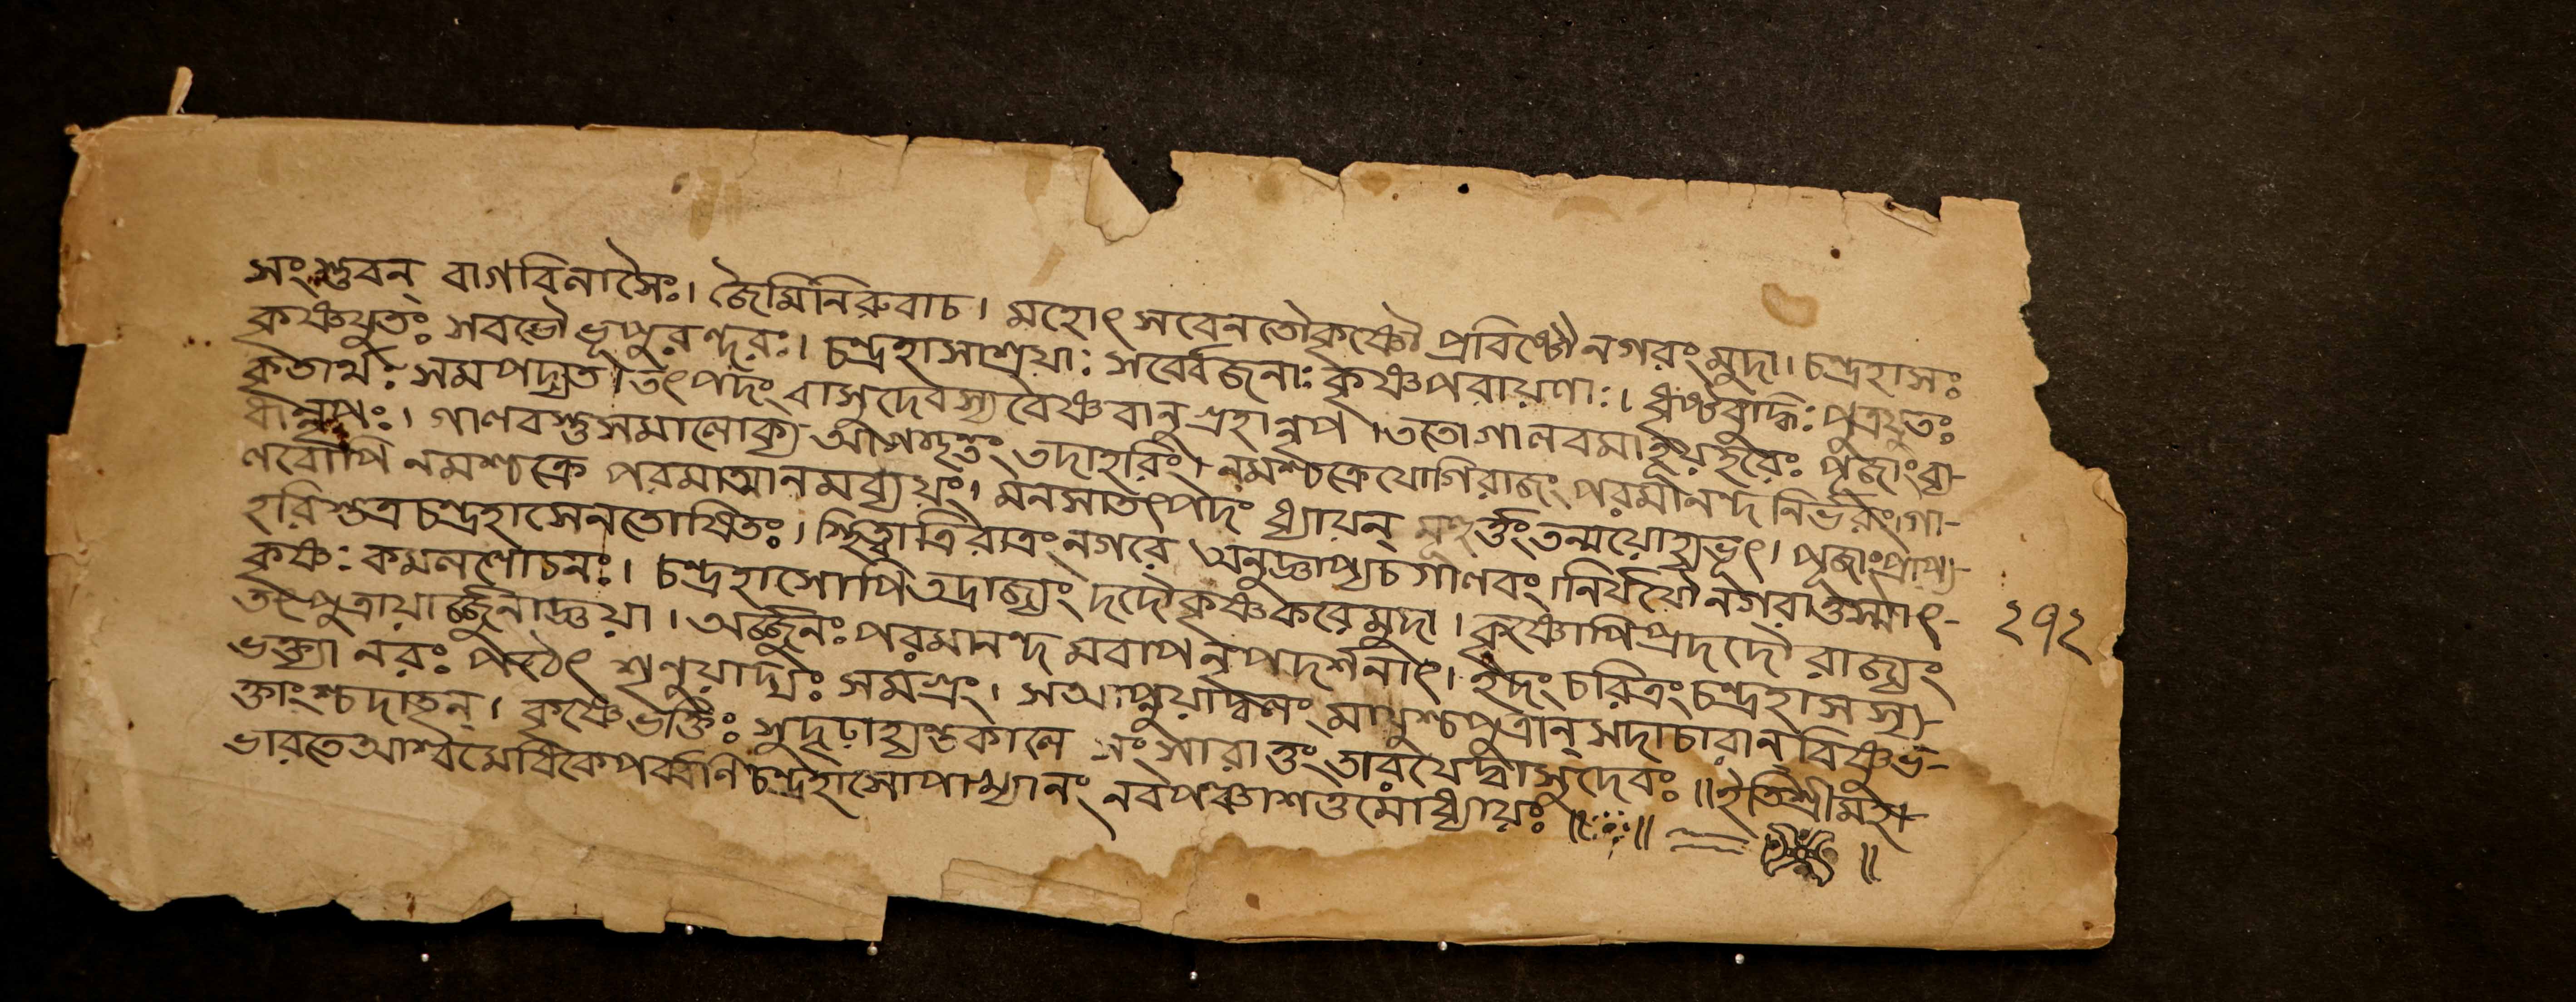 সংস্তুবন্ বাগবিলাসৈঃ। জৈমিনিরুবাচ। মহোৎসবেনতৌকৃষ্ণৌ প্রবিষ্টৌ নগরং মুদা। চন্দ্রহাসঃ
কৃষ্ণযুতঃ সবভৌ ভূপুরন্দরঃ। চন্দ্রহাসাশ্রয়াঃ সর্ব্বেজনাঃ কৃষ্ণপরায়ণাঃ। ধৃষ্টবুদ্ধিঃ পুত্রযুতঃ
কৃতার্থঃ সমপদ্যত। তৎপদং বাসুদেবস্য বৈষ্ণবানুগ্রহান্নৃপ। ততোগালবমাহূয় হরেঃ পূজাংব্য-
ধান্নৃপঃ। গালবস্তুসমালোক্য আগচ্ছন্তং তদাহরিং। নমশ্চক্রেযোগিরাজং পরমানন্দ নির্ভরং। গা-
লবোপি নমশ্চক্রে পরমাত্মানমব্যয়ং। মনসাতৎপদং ধ্যায়ন্ মুহূর্ত্তং তন্ময়োহ্যভূৎ। পূজাংপ্রাপ্য-
হরিস্তত্র চন্দ্রহাসেনতোষিতঃ। স্থিত্বাত্রিরাত্রং নগরে অনুজ্ঞাপ্যচ গালবং। নির্যযৌ নগরাত্তস্মাৎ-
কৃষ্ণঃ কমললোচনঃ। চন্দ্রহাসোপি তদ্রাজ্যং দদৌ কৃষ্ণকরেমুদা। কৃষ্ণোপিপ্রদদৌ রাজ্যং
তৎপুত্রায়ার্জ্জুনাজ্ঞয়া। অর্জ্জুনঃ পরমানন্দমবাপ নৃপদর্শনাৎ। ইদং চরিত্রং চন্দ্রহাসস্য-
ভক্ত্যা নরঃ পঠেৎ শৃণুয়াদ্যঃ সমগ্রং। সআপ্নুয়াদ্বলং মায়ুশ্চপুত্রান্ সদাচারান্ বিষ্ণুভ-
ক্তাংশ্চদাতৃন্। কৃষ্ণেভক্তিঃ সুদৃঢ়াহ্যন্তকালে সংসারাত্তং তারয়েদ্বাসুদেবঃ॥ ইতিশ্রীমহা-
ভারতেআশ্বমেধিকেপর্ব্বণি চন্দ্রহাসোপাখ্যানং নবপঞ্চাশত্তমোধ্যায়ঃ॥ ॥ ॥
২৭২